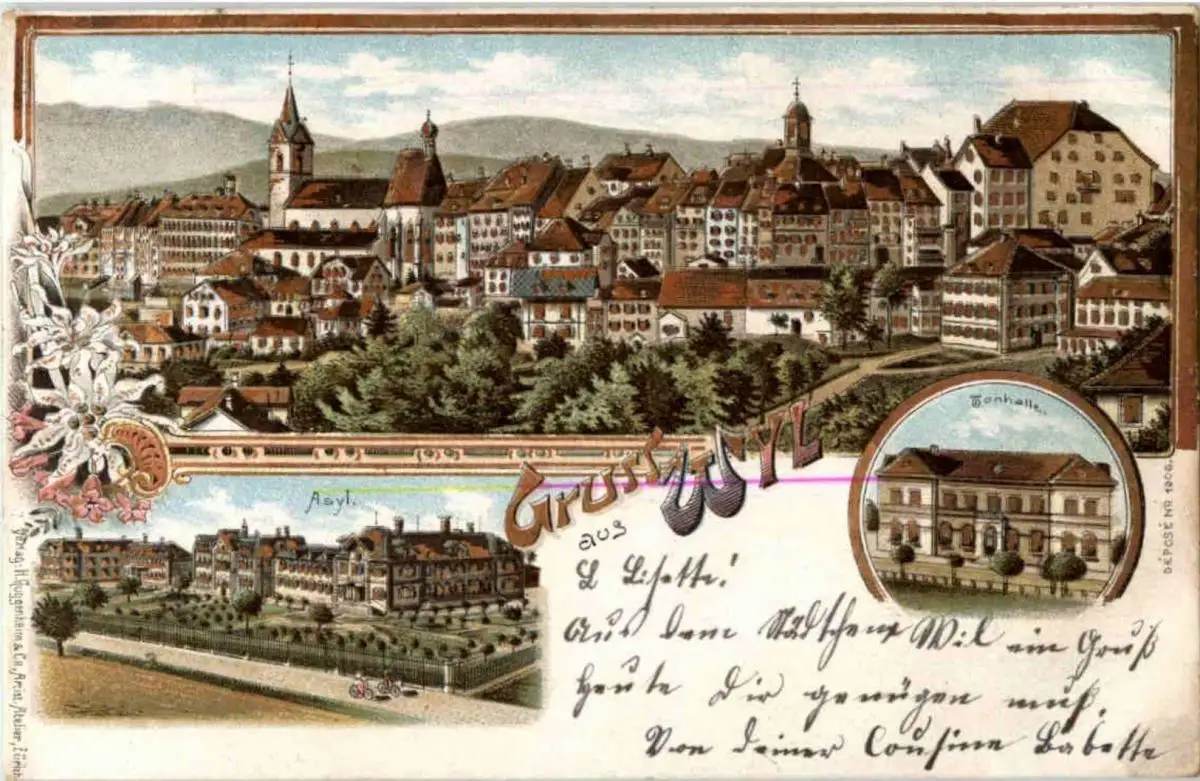 Tonhalle.
Gruss aus WYL
Asyl.
L Lisette!
Aus dem Städtchen Wil ein Gruß
Heute Dir genügen muß,
Von deiner Cousine Babette
DÉPOSÉ NR. 1906.
Verlag: H. Guggenheim & Co., Artist. Atelier, Zürich.